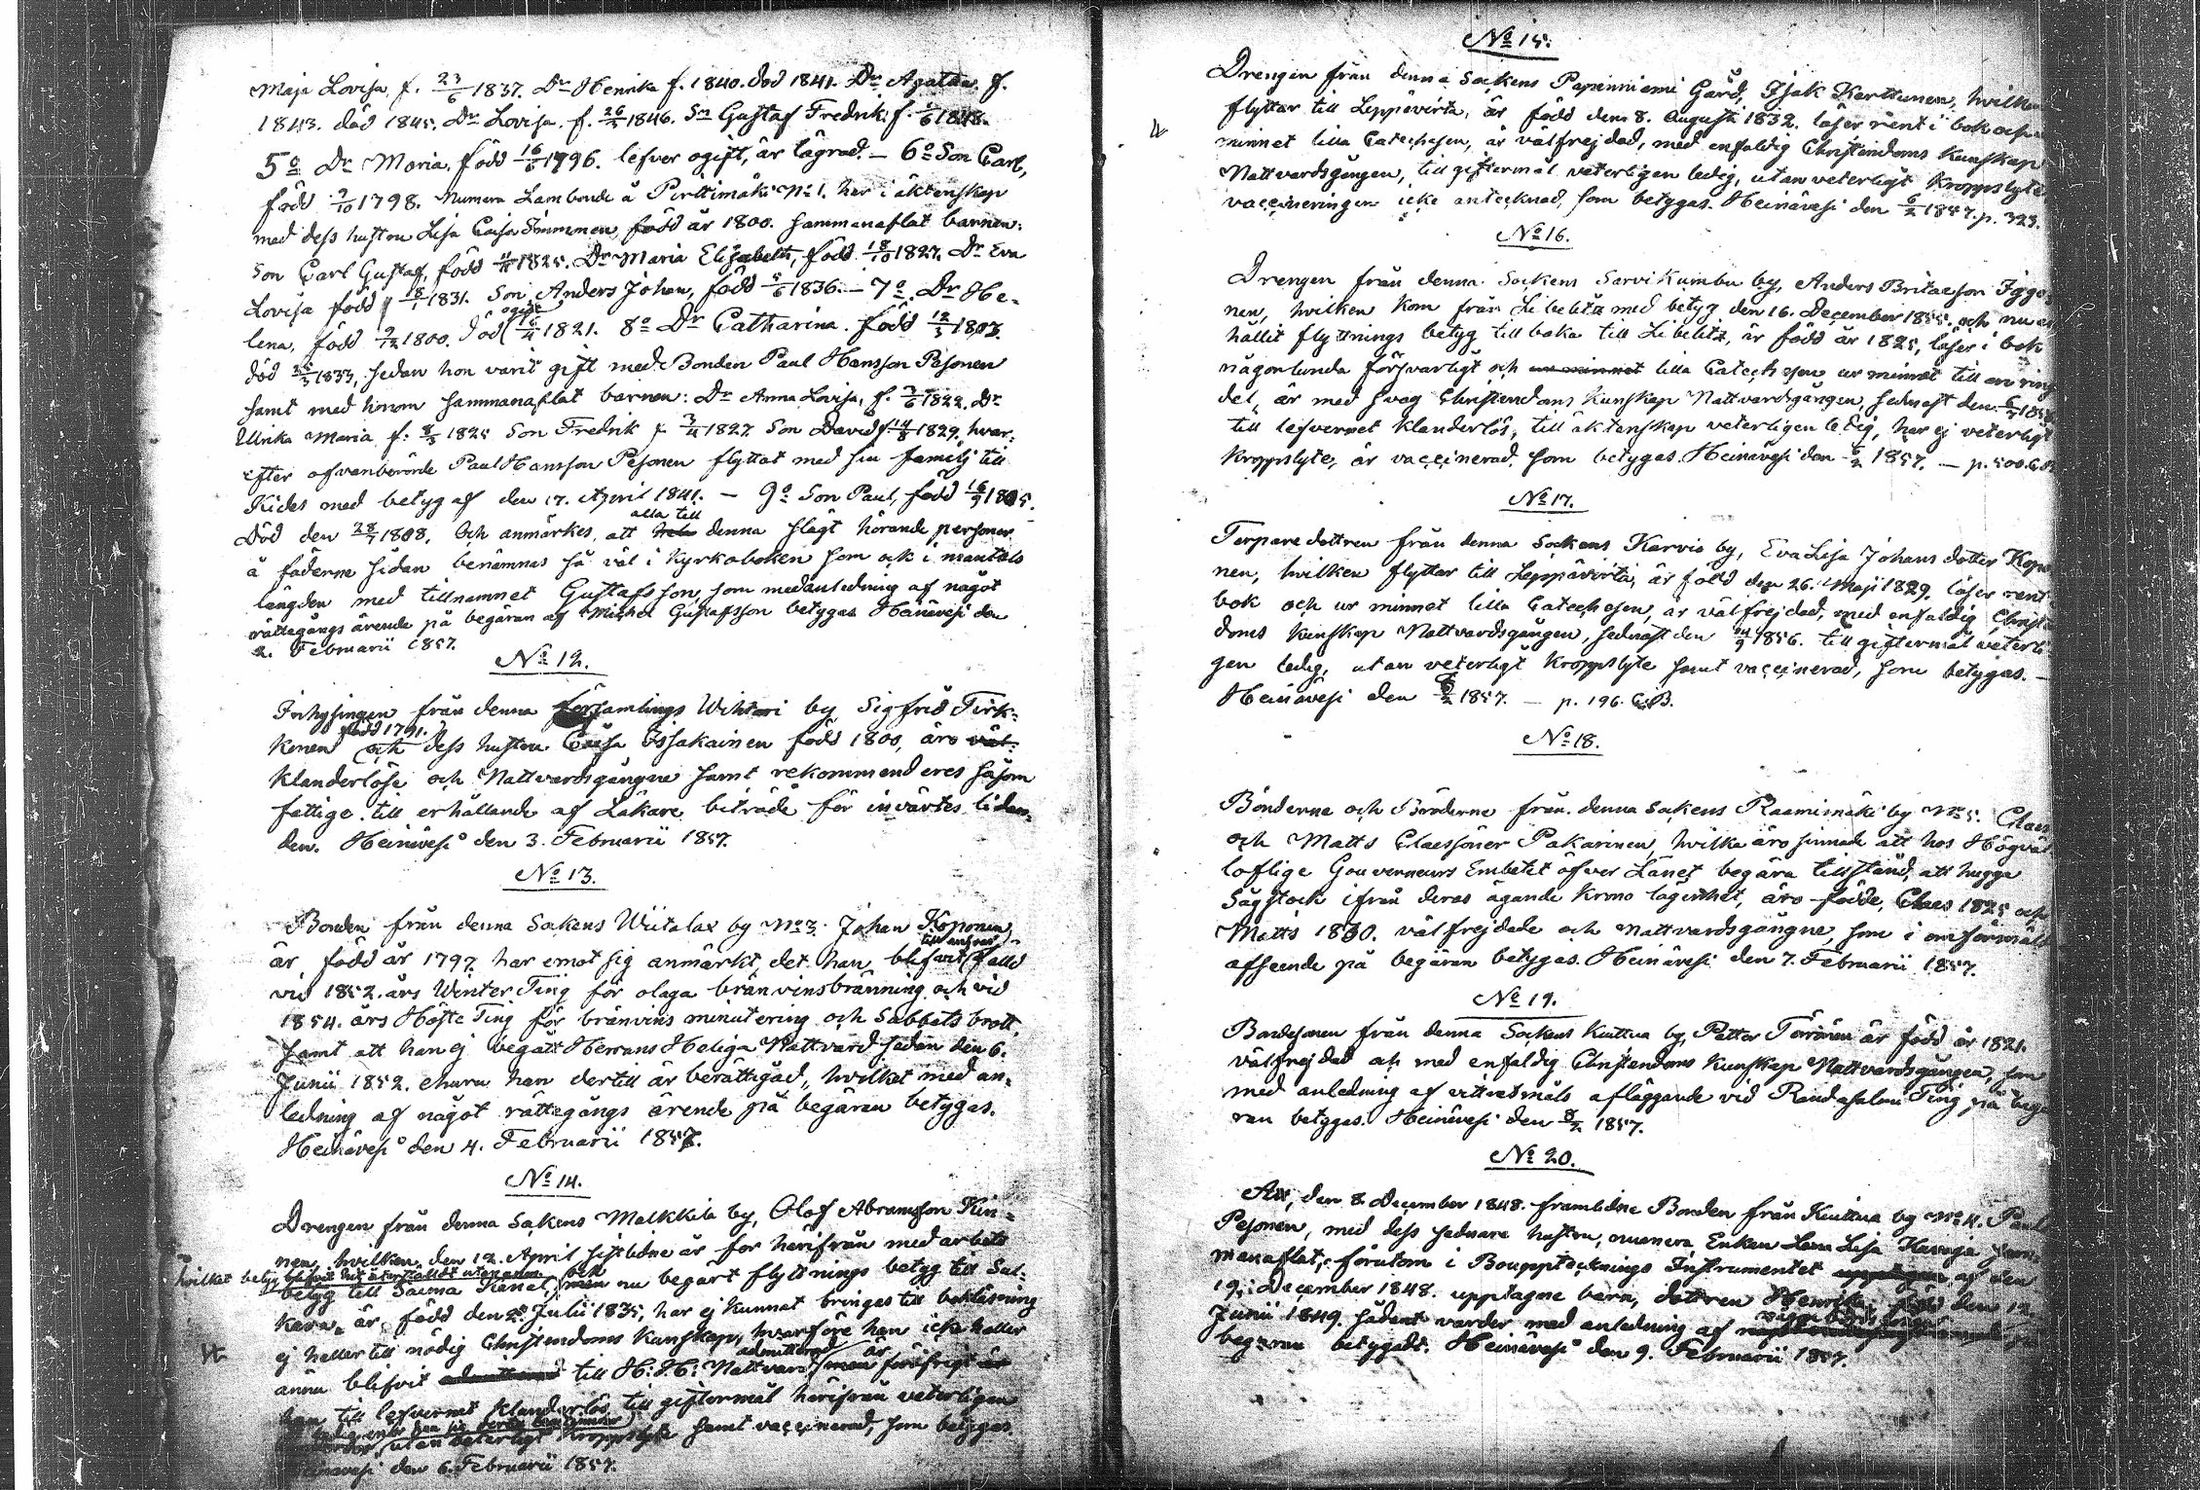 Maja Lovisa, f. 23/6 1837. Dr Henrika f. 1840. död 1841. Dr Agatha f.
1843. död 1845. Dr Lovisa f. 26/5 1846. Sn Gustaf Fredrik, f. 1/6 1848.
5o Dr Maria, född 16/6 1796. lefver ogift, är lägrad. — 6o Son Carl,
född 2/10 1798. numera Lambonde å Perttimäki No 1. har i äktenskap
med dess hustru Lisa Caisa Immonen, född år 1800. sammanaflat barnen:
Son Carl Gustaf, född 1825. Dr Maria Elisabeth, född 18/10 1827. Dr Eva
Lovisa född 18/1 1831. Son Anders Johan, född 5/6 1836. — 7o Dr He-
lena, född 1800. död ogift 16/4 1821. 8o Dr Catharina. född 12/5 1803.
död 25/3 1833, sedan hon varit gift med Bonden Paul Hansson Pesonen
samt med honom sammanaflat barnen: Dr Anna Lovisa, f. 3/6 1822. Dr
Ulrika Maria f. 8/5 1825 Son Fredrik f. 3/4 1827 Son David f. 14/8 1829, hvar-
efter ofvanberörde Paul Hansson Pesonen flyttat med sin familj till
Kides med betyg af den 17. April 1841. — 9o Son Paul, född 16/9 1805.
Död den 28/7 1808. Och anmärkes, att alla till denna slägt hörande personer
å fäderne sidan benämnas så väl i Kyrkoboken som ock i mantals
längden med tillnamnet Gustafsson, som medanledning af något
rättegångs ärende på begäran af Michel Gustafsson betygas Heinävesi den
2. Februarii 1857.
No 12.
Inhysingen från denna församlings Wihtari by Sigfrid Tirk-
konen född 1791. och dess hustru Caisa Ossakainen född 1800, äro
klanderlöse och Nattvardsgångne samt rekommenderes såsom
fattige till erhållande af Läkare biträde för invärtes lidan-
den. Heinävesi den 3. Februarii 1857.
No 13.
Bonden från denna Sockens Wiitalax by No 3. Johan Koponen
är född år 1797. har emot sig anmärkt, det han blifvit till ansvar fälld
vid 1852. års Winter Ting för olaga bränvinsbränning och vid
1854. års Höste Ting för bränvins minutering och Sabbats brott,
samt att han ej begått Herrans Heliga Nattvard sedan den 6.
Junii 1852. ehuru han dertill är berättigad, hvilket med an-
ledning af något rättegångs ärende på begäran betygas.
Heinävesi den 4. Februarii 1857.
No 14.
Drengen från denna Sockens Malkkila by, Olof Abramsson Kin-
nen, hvilken den 12. April sistlidne år for härifrån med arbets
hvilket betyg blifvit hit återstäldt utan
betyg till Saima Kanal, och nu begärt flyttnings betyg till Sul-
kava, är född den 25 Julii 1835, har ej kunnat bringas till bokläsning
ej heller till nödig Christendoms Kunskap, hvarföre han icke heller
ännu blifvit admitterad till H. H. Nattvard, men för öfrigt är
han till lefvernet klanderlös, till giftermål härifrån veterligen
utan veterligt Kroppslyte samt vaccinerad, som betygas.
Heinävesi den 6. Februarii 1857.
No 15.
Drengen från denna Sockens Papinniemi Gård, Isak Karttunen, hvilken
flyttar till Leppävirta, är född den 8. Augusti 1832. läser rent i bok och ur
minnet lilla Catechesen, är välfrejdad, med enfaldig Christendoms Kunskap
Nattvardsgången, till giftermål veterligen ledig, utan veterligt Kroppslyte,
vaccineringen icke antecknad, som betygas. Heinävesi den 6/2 1857. p. 323.
No 16.
Drengen från denna Sockens Sarvikumbu by, Anders Britaeson Igge-
nen, hvilken kom från Libelitz med betyg den 16. December 1855. och nu er-
hållit flyttnings betyg till baka till Libelitz, är född år 1825, läser i bok
någorlunda försvarligt och lilla Catechesen ur minnet till en ringa
del, är med svag Christendoms Kunskap Nattvardsgången sednast den
till lefvernet klanderlös, till äktenskap veterligen ledig, har ej veterligt
Kroppslyte, är vaccinerad, som betygas. Heinävesi den 6/2 1857. — p. 500. C.B.
No 17.
Torparedottren från denna Sockens Karvio by, Eva Lisa Johans dotter Kopo-
nen, hvilken flyttar till Leppävirta, är född den 26. Maji 1829. läser rent i
bok och ur minnet lilla Catechesen, är välfrejdad, med enfaldig Christen-
doms Kunskap Nattvardsgången, sednast den 14/9 1856. till giftermål veterli-
gen ledig, utan veterligt Kroppslyte samt vaccinerad, som betygas. —
Heinävesi den 6/2 1857. — p. 196. C.B.
No 18.
Bönderne och Bröderne från denna Sockens Raamimäki by No 5. Claes
och Matts Claessöner Pakarinen, hvilka äro sinnade att hos Högväl-
loflige Gouverneurs Embetet öfver Länet begära tillstånd, att hugga
Sågstock ifrån deras ägande Krono lägenhet, äro födde, Claes 1825 och
Matts 1830. välfrejdade och nattvardsgångne, som i omförmäldt
afseende på begäran betygas. Heinävesi den 7. Februarii 1857.
No 19.
Bondesonen från denna Sockens Kuittua by, Petter Törönen är född år 1821.
välfrejdad och med enfaldig Christendoms Kunskap Nattvardsgången, som
med anledning af vittnesmåls afläggande vid Randasalmi Ting på begä-
ran betygas. Heinävesi den 8/2 1857.
No 20.
Att, den 8 December 1848. framlidne Bonden från Kuittua by No 4. Paul
Pesonen, med dess sednare hustru, numera Enkan Lisa Havuja sam-
manaflat, förutom i Bouppteckning Instrumentet af den
19. December 1848. upptagne barn, dottren Henrika, född den 12.
Junii 1849. sådant varder med anledning af
begäran betygadt. Heinävesi den 9. Februarii 1857.